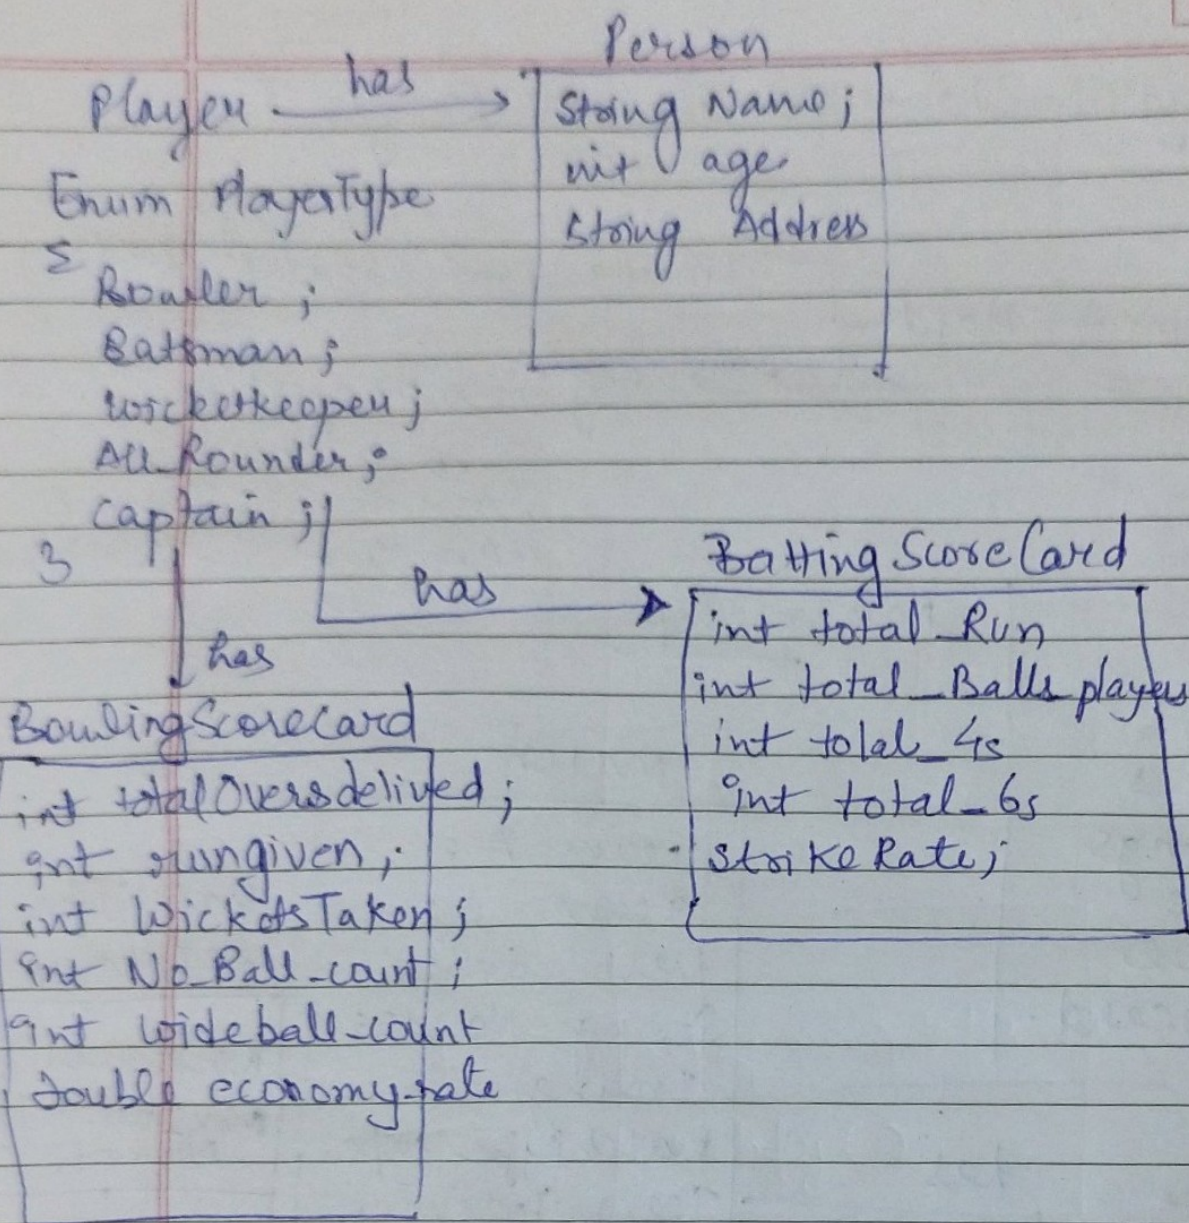 Person
Player has
String Name;
int age
String Address
Enum PlayerType
{
Bowler;
Batsman;
Wicketkeeper;
All_Rounder;
Captain;
}
has
has
BattingScoreCard
int total_Run
int total_Balls players
int total_4s
int total_6s
StrikeRate;
BowlingScorecard
int totalOversdelived;
int rungiven;
int WicketsTaken;
int No_Ball_count;
int wideball_count
double economy_rate